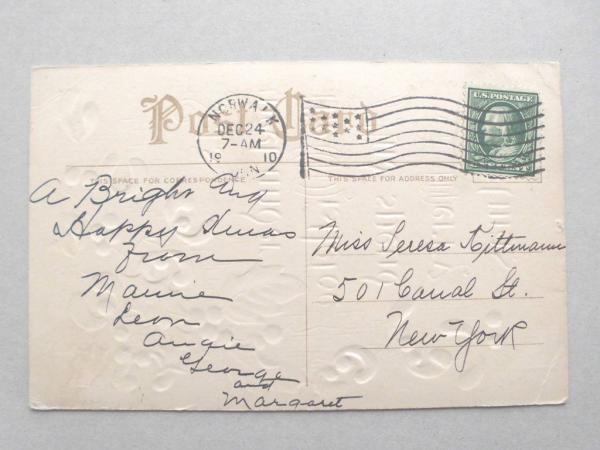 Post Card
NORWALK
DEC 24
7-AM
1910
CONN.
U.S. POSTAGE
THIS SPACE FOR CORRESPONDENCE
THIS SPACE FOR ADDRESS ONLY
A Bright and
Happy Xmas
from
Mamie
Leon
Angie
George
and
Margaret
Miss Teresa Kittmann
501 Canal St.
New-York